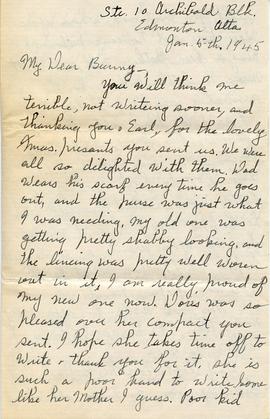 Ste. 10 Archibald Blk.
Edmonton Alta
Jan. 5th. 1945
My Dear Bunny—
You will think me
terrible, not writeing sooner, and
thanking you & Earl, for the lovely
Xmas. presants you sent us. We were
all so delighted with them. Dad
wears his scarf every time he goes
out, and the purse was just what
I was needing, my old one was
getting pretty shabby looking, and
the lineing was pretty well woren
out in it, I am really proud of
my new one now. Doris was so
pleased over her compact you
sent. I hope she takes time off to
write & thank you for it, she is
such a poor hand to write, home
like her Mother I guess. Poor kid